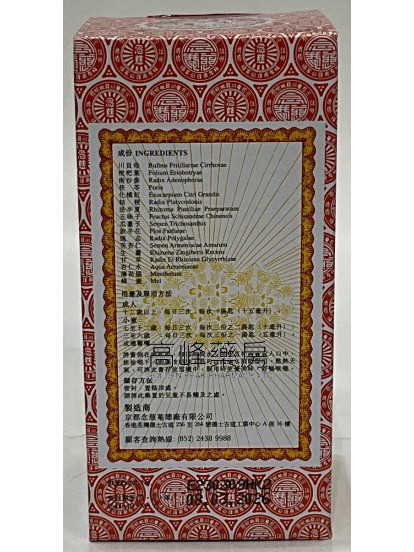 成份 INGREDIENTS
川貝母 Bulbus Fritillariae Cirrhosae
枇杷葉 Folium Eriobotryae
南沙參 Radix Adenophorae
茯苓 Poria
化橘紅 Exocarpium Citri Grandis
桔梗 Radix Platycodonis
法半夏 Rhizoma Pinelliae Praeparatum
五味子 Fructus Schisandrae Chinensis
瓜蔞子 Semen Trichosanthis
款冬花 Flos Farfarae
遠志 Radix Polygalae
苦杏仁 Semen Armeniacae Amarum
生薑 Rhizoma Zingiberis Recens
甘草 Radix Et Rhizoma Glycyrrhizae
杏仁水 Aqua Armeniacae
薄荷腦 Mentholum
蜂蜜 Mel
用量及服用方法
成人
十二歲以上，每日三次，每次一湯匙（十五毫升）
小童
七至十二歲：每日三次，每次三份之二湯匙（十毫升）
儲存方法
密封，置陰涼處。
製造商
京都念慈菴總廠有限公司
香港荃灣德士古道 256 至 264 號德士古道工業中心 A 座 16 樓
顧客查詢熱線 (852) 2438 9988
高峰藥房
E230309HK2
08.03.2026